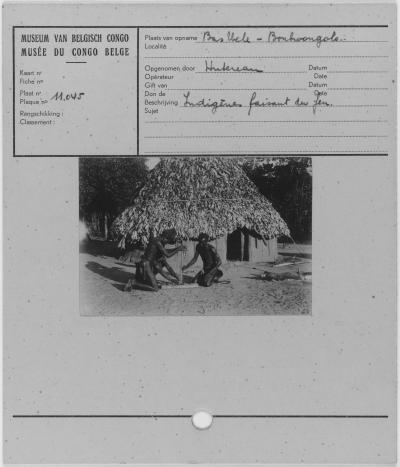 MUSEUM VAN BELGISCH CONGO
MUSÉE DU CONGO BELGE
Kaart nr
Fiche no
Plaat nr
Plaque no 11.045
Rangschikking :
Classement :
Plaats van opname Bas Uele -
Localité
Opgenomen door Hutereau Datum
Opérateur Date
Gift van Datum
Don de Date
Beschrijving Indigènes faisant du feu.
Sujet